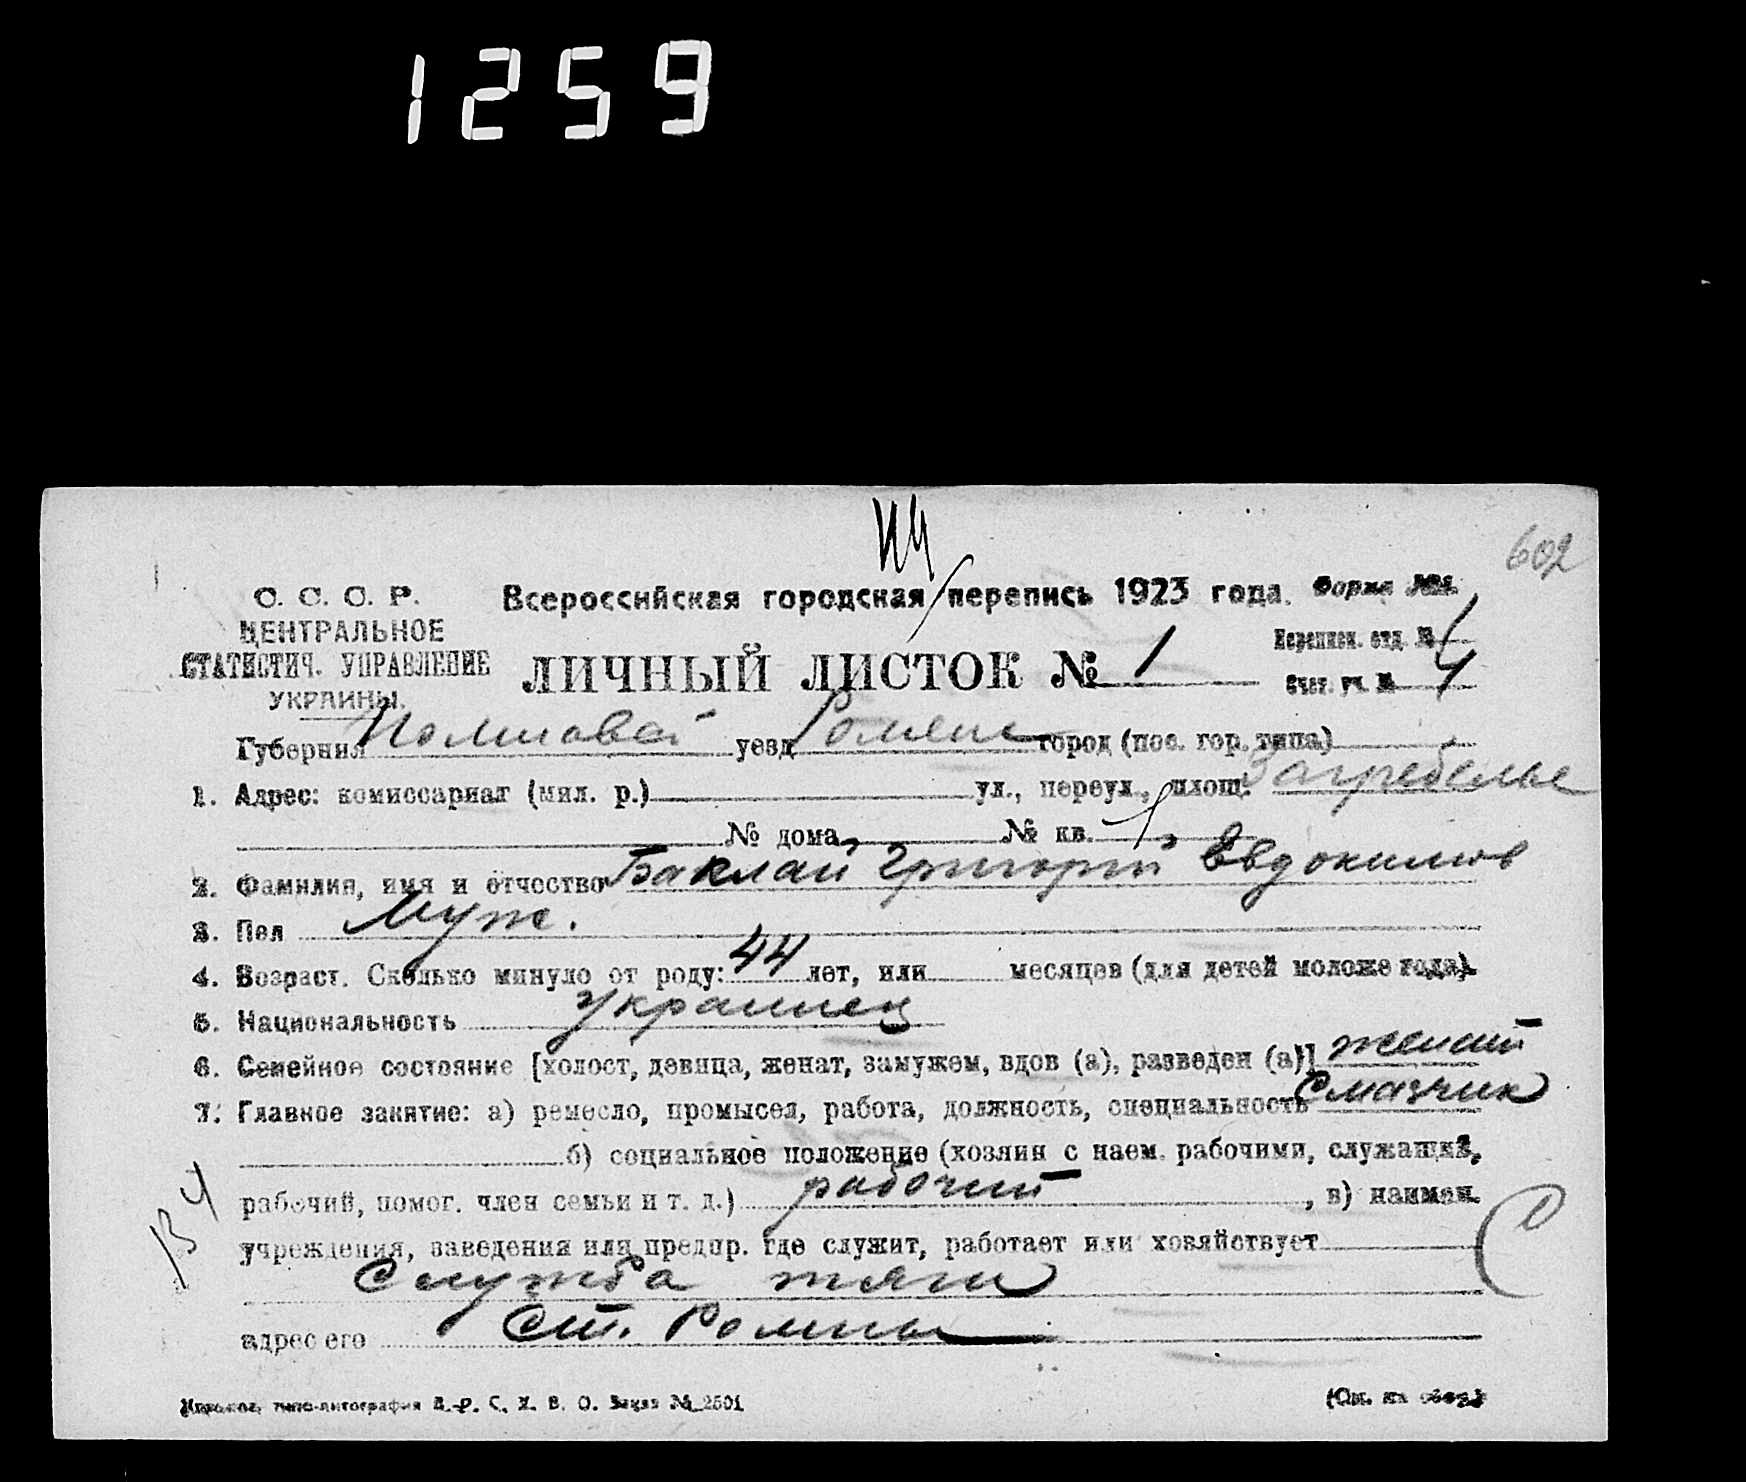 1259
602
С. С. С. Р.
ЦЕНТРАЛЬНОЕ
СТАТИСТИЧ. УПРАВЛЕНИЕ
УКРАИНЫ.
Всероссийская городская перепись 1923 года.
Форма №1.
ЛИЧНЫЙ ЛИСТОК № 1
Переписн. отд. №
Счет. уч. № 4
Губерния Полтавск уезд Ромен город (пос. гор. типа)
1. Адрес: комиссариат (мил. р.) ул., переул., площ. Загребелье
№ дома № кв.
2. Фамилия, имя и отчество Баклай Григорий Евдокимов
3. Пол Муж.
4. Возраст. Сколько минуло от роду: 44 лет, или месяцев (для детей моложе года).
5. Национальность Украинец
6. Семейное состояние [холост, девица, женат, замужем, вдов (а), разведен (а)] женат
7. Главное занятие: а) ремесло, промысел, работа, должность, специальность Смазчик
б) социальное положение (хозяин с наем. рабочими, служащий,
рабочий, помог. член семьи и т. д.) рабочий, в) наимен.
учреждения, заведения или предпр. где служит, работает или хозяйствует
Служба тяги
адрес его Ст. Ромны
типо-литография Заказ № 2501
(См. на обор.)